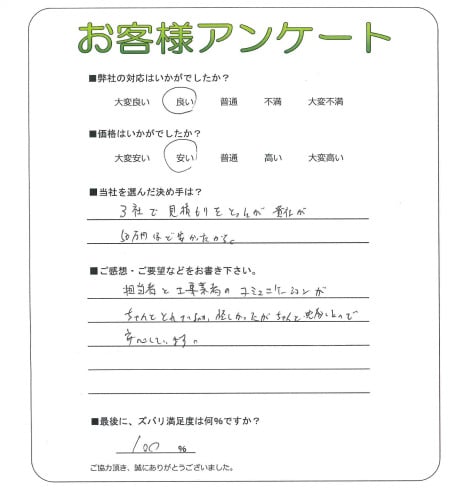 お客様アンケート
■弊社の対応はいかがでしたか?
大変良い 良い 普通 不満 大変不満
■価格はいかがでしたか?
大変安い 安い 普通 高い 大変高い
■当社を選んだ決め手は?
3社で見積もりをとったが 貴社が
50万円ほど安かったから。
■ご感想・ご要望などをお書き下さい。
担当者と工事業者のコミュニケーションが
ちゃんと とれ かったが ちゃんと ので
安心しています。
■最後に、ズバリ満足度は何%ですか?
100 %
ご協力頂き、誠にありがとうございました。